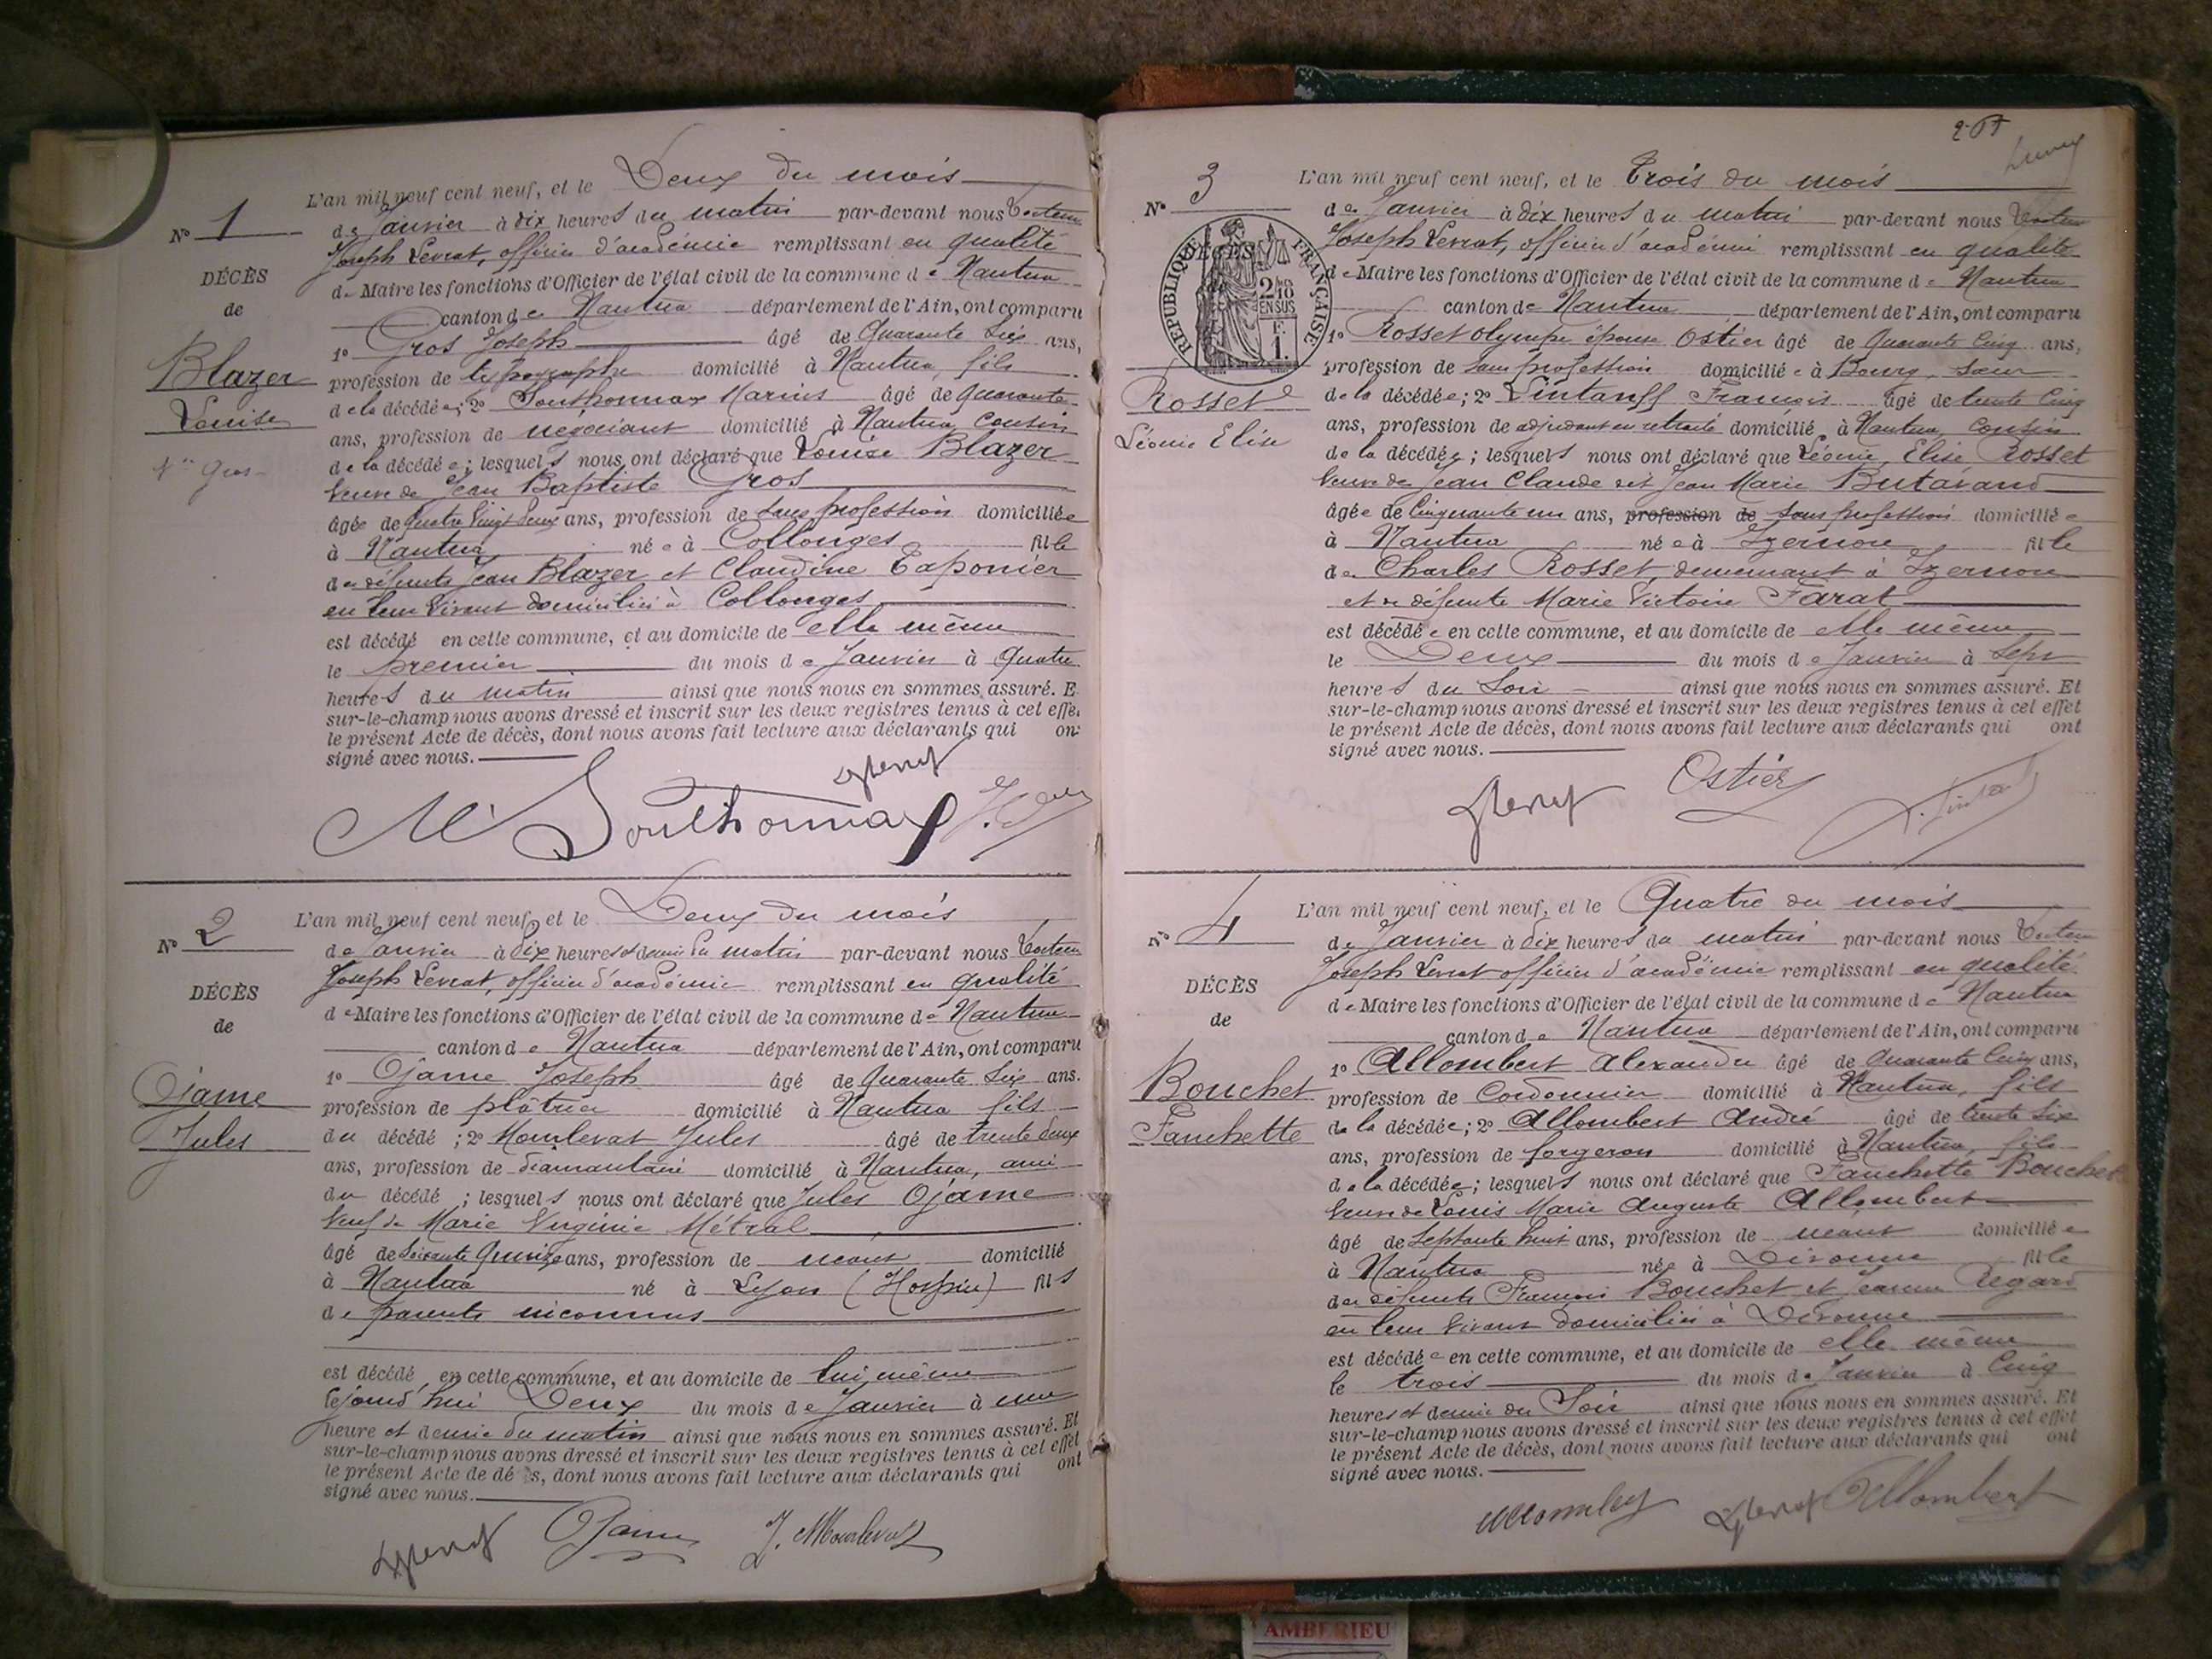 N° 1
DÉCÈS
de
Blazer
Louise
Vve Gros
L'an mil neuf cent neuf, et le Deux du mois
de Janvier à dix heures du matin par-devant nous Victeur
Joseph Levrat, officier d'académie remplissant en qualité
de Maire les fonctions d'Officier de l'état civil de la commune de Nantua
canton de Nantua département de l'Ain, ont comparu
1° Gros Joseph âgé de Quarante Six ans,
profession de typographe domicilié à Nantua, fils
de la décédée; 2° Southonnax Marius âgé de Quarante
ans, profession de négociant domicilié à Nantua, Cousin
de la décédée; lesquels nous ont déclaré que Louise Blazer
Veuve de Jean Baptiste Gros
âgée de Quatre Vingt Deux ans, profession de Sans profession domiciliée
à Nantua née à Collonges fille
des défunts Jean Blazer et Claudine Taponier
en leur vivant domiciliés à Collonges
est décédé en cette commune, et au domicile de elle même
le premier du mois de Janvier à Quatre
heures du matin ainsi que nous nous en sommes assuré. E
sur-le-champ nous avons dressé et inscrit sur les deux registres tenus à cet effe
le présent Acte de décès, dont nous avons fait lecture aux déclarants qui on
signé avec nous.
M Southonnax
N° 2
DÉCÈS
de
Ojame
Jules
L'an mil neuf cent neuf, et le Deux du mois
de Janvier à Dix heures et demie du matin par-devant nous
Joseph Levrat, officier d'académie remplissant en qualité
de Maire les fonctions d'Officier de l'état civil de la commune de Nantua
canton de Nantua département de l'Ain, ont comparu
1° Ojame Joseph âgé de Quarante Six ans.
profession de plâtrier domicilié à Nantua fils
du décédé ; 2° Mourlevat Jules âgé de trente deux
ans, profession de diamantaire domicilié à Nantua, ami
du décédé ; lesquels nous ont déclaré que Jules Ojame
Veuf de Marie Virginie Métral
âgé de Soixante Quinze ans, profession de néant domicilié
à Nantua né à Lyon (Hospice) fils
de parents inconnus
est décédé en cette commune, et au domicile de lui même
lejourd'hui Deux du mois de Janvier à une
heure et demie du matin ainsi que nous nous en sommes assuré. Et
sur-le-champ nous avons dressé et inscrit sur les deux registres tenus à cet effet
le présent Acte de dé s, dont nous avons fait lecture aux déclarants qui ont
signé avec nous.
Ojame J. Mourlevat
N° 3
RÉPUBLIQUE FRANÇAISE
DÉCÈS
2/10 EN SUS
F. 1.
Rosset
Léonie Elise
L'an mil neuf cent neuf, et le Trois du mois
de Janvier à Dix heures du matin par-devant nous
Joseph Levrat, officier d'académie remplissant en qualité
de Maire les fonctions d'Officier de l'état civil de la commune de Nantua
canton de Nantua département de l'Ain, ont comparu
1° Rosset Olympe épouse Ostier âgé de Quarante Cinq ans,
profession de Sans profession domiciliée à Bourg, Sœur
de la décédée; 2° Vintanff François âgé de trente Cinq
ans, profession de adjudant en retraite domicilié à Nantua, Cousin
de la décédée; lesquels nous ont déclaré que Léonie, Elise Rosset
Veuve de Jean Claude dit Jean Marie Butavand
âgée de Cinquante un ans, profession de Sans profession domiciliée
à Nantua née à Izernore fille
de Charles Rosset, demeurant à Izernore
et de défunte Marie Victoire Farat
est décédée en cette commune, et au domicile de elle même
le Deux du mois de Janvier à Sept
heures du Soir ainsi que nous nous en sommes assuré. Et
sur-le-champ nous avons dressé et inscrit sur les deux registres tenus à cet effet
le présent Acte de décès, dont nous avons fait lecture aux déclarants qui ont
signé avec nous.
Ostier
N° 4
DÉCÈS
de
Bouchet
Fanchette
L'an mil neuf cent neuf, et le Quatre du mois
de Janvier à Dix heures du matin par-devant nous
Joseph Levrat officier d'académie remplissant en qualité
de Maire les fonctions d'Officier de l'état civil de la commune de Nantua
canton de Nantua département de l'Ain, ont comparu
1° Allombert Alexandre âgé de Quarante Cinq ans,
profession de Cordonnier domicilié à Nantua, fils
de la décédée; 2° Allombert André âgé de trente Six
ans, profession de forgeron domicilié à Nantua, fils
de la décédée; lesquels nous ont déclaré que Fanchette Bouchet
Veuve de Louis Marie Auguste Allombert
âgé de Septante huit ans, profession de néant domiciliée
à Nantua née à Divonne fille
des défunts François Bouchet et Jeanne Regard
en leur vivant domiciliés à Divonne
est décédée en cette commune, et au domicile de elle même
le trois du mois de Janvier à Cinq
heures et demie du Soir ainsi que nous nous en sommes assuré. Et
sur-le-champ nous avons dressé et inscrit sur les deux registres tenus à cet effet
le présent Acte de décès, dont nous avons fait lecture aux déclarants qui ont
signé avec nous.
Allombert
AMBERIEU